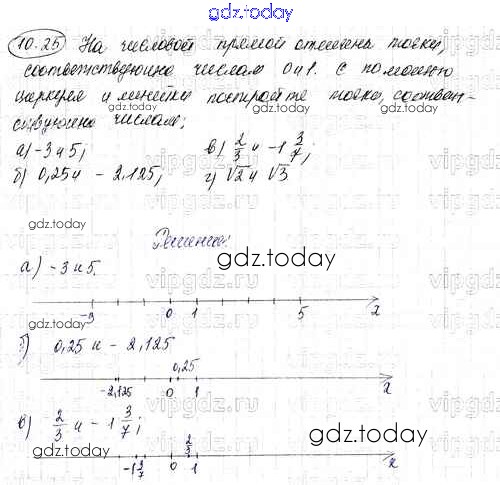 gdz.today
10.25 На числовой прямой отмечены точки,
соответствующие числам 0 и 1. С помощью
циркуля и линейки постройте точки, соответ-
ствующие числам:
gdz.today
а) -3 и 5; в) 2/3 и -1 3/7;
б) 0,25 и -2,125; г) √2 и √3
gdz.today
Решение:
gdz.today
а) -3 и 5.
-3 0 1 5 x
gdz.today
б) 0,25 и -2,125
0,25
-2,125 0 1 x
в) 2/3 и -1 3/7;
gdz.today
2/3
-1 3/7 0 1 x